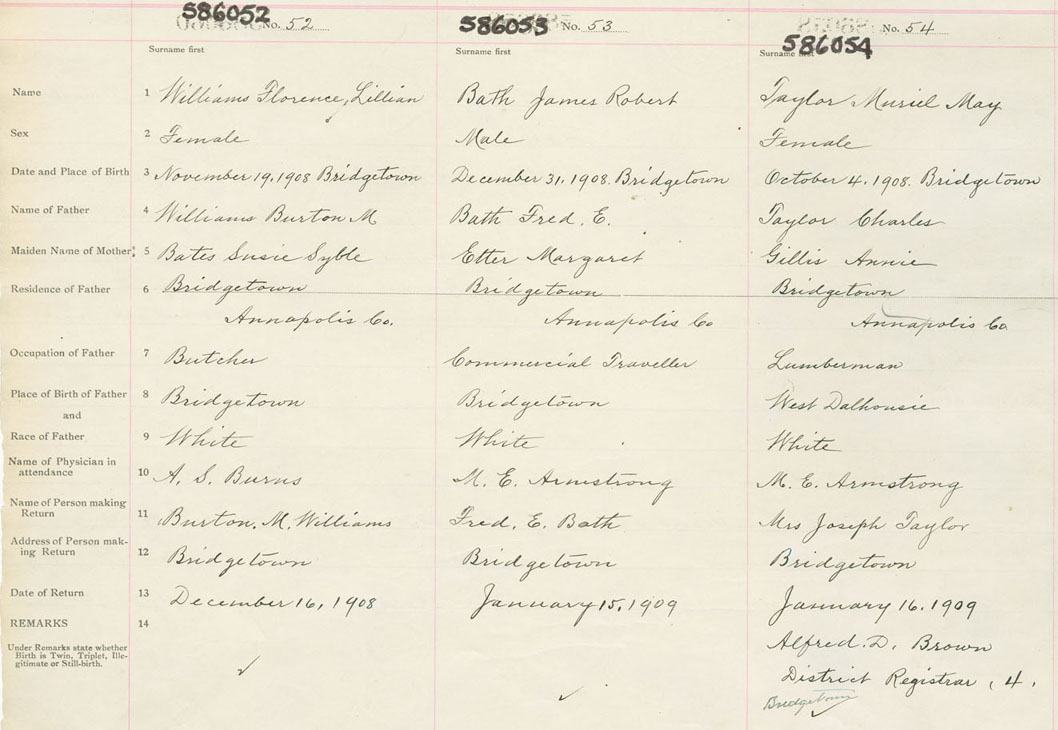 586052 No. 52 586053 No. 53 586054 No. 54
Surname first Surname first Surname first
Name 1 Williams Florence, Lillian Bath James Robert Taylor Muriel May
Sex 2 Female Male Female
Date and Place of Birth 3 November 19, 1908 Bridgetown December 31, 1908. Bridgetown October 4, 1908. Bridgetown
Name of Father 4 Williams Burton M Bath Fred. E. Taylor Charles
Maiden Name of Mother 5 Bates Susie Syble Etter Margaret Gillis Annie
Residence of Father 6 Bridgetown Bridgetown Bridgetown
Annapolis Co. Annapolis Co Annapolis Co
Occupation of Father 7 Butcher Commercial Traveller Lumberman
Place of Birth of Father 8 Bridgetown Bridgetown West Dalhousie
and
Race of Father 9 White White White
Name of Physician in
attendance 10 A. S. Burns M. E. Armstrong M. E. Armstrong
Name of Person making
Return 11 Burton. M. Williams Fred. E. Bath Mrs Joseph Taylor
Address of Person mak-
ing Return 12 Bridgetown Bridgetown Bridgetown
Date of Return 13 December 16, 1908 January 15, 1909 January 16. 1909
REMARKS 14
Alfred. D. Brown
Under Remarks state whether
Birth is Twin, Triplet, Ille-
gitimate or Still-birth.
District Registrar, 4.
Bridgetown